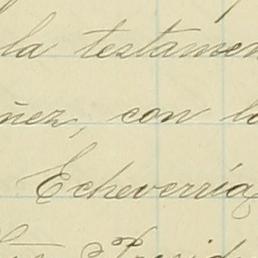 la testamen
ñez, con lo
Echeverría